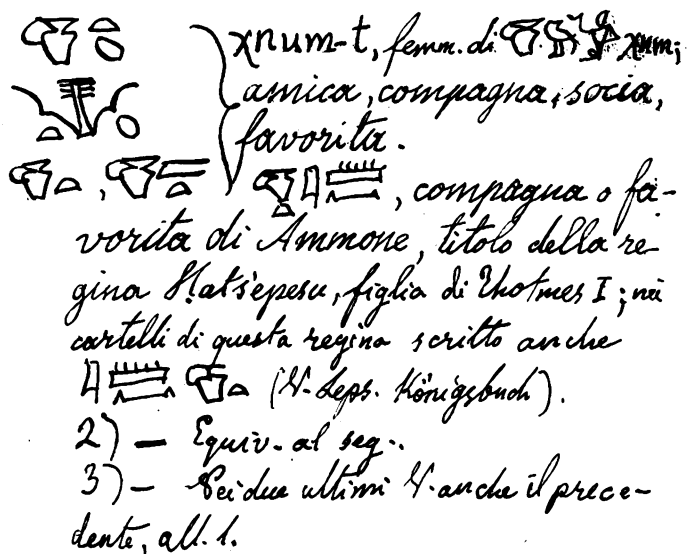 χnum-t, femm. di χnm;
amica, compagna, socia,
favorita.
, , , compagna o fa-
vorita di Ammone, titolo della re-
gina Ḥatšepesu, figlia di Thotmes I; nei
cartelli di questa regina scritto anche
(V. Leps. Königsbuch).
2) — Equiv. al seg..
3) — Pei due ultimi V. anche il prece-
dente, all. 1.